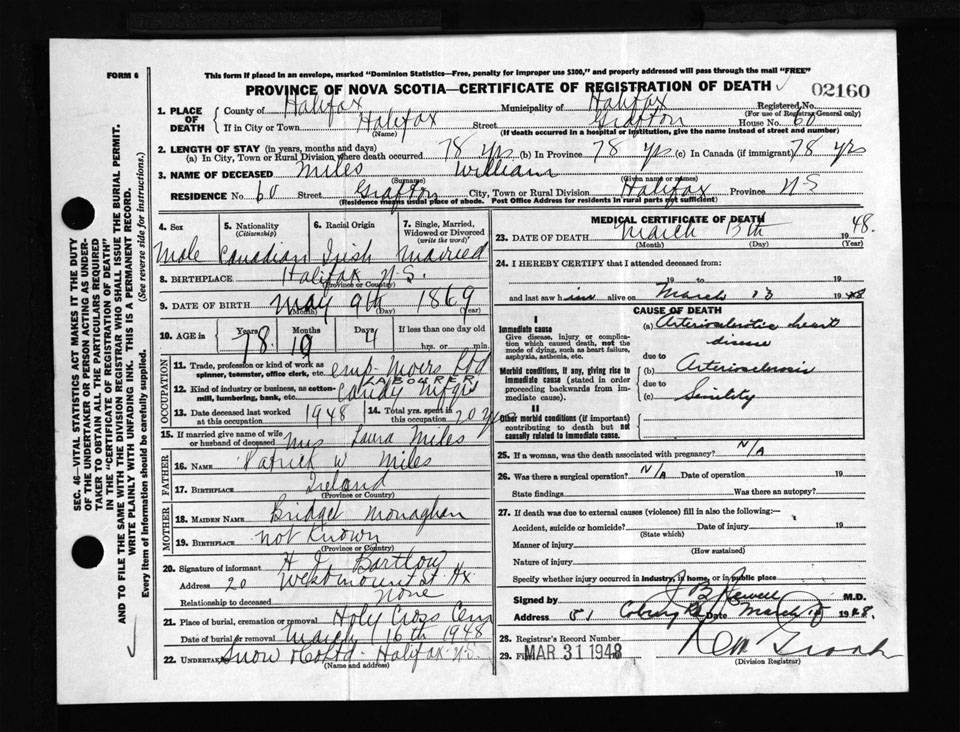 FORM 6
This form if placed in an envelope, marked "Dominion Statistics—Free, penalty for improper use $300," and properly addressed will pass through the mail "FREE"
PROVINCE OF NOVA SCOTIA—CERTIFICATE OF REGISTRATION OF DEATH
02160
1. PLACE OF DEATH
County of Halifax Municipality of Halifax Registered No.
(For use of Registrar General only)
If in City or Town Halifax Street Grafton House No. 60
(Name) (If death occurred in a hospital or institution, give the name instead of street and number)
2. LENGTH OF STAY (in years, months and days)
(a) In City, Town or Rural Division where death occurred 78 yrs (b) In Province 78 yrs (c) In Canada (if immigrant) 78 yrs
3. NAME OF DECEASED Miles William
(Surname) (Given name or names)
RESIDENCE No. 60 Street Grafton City, Town or Rural Division Halifax Province N-S
(Residence means usual place of abode. Post Office Address for residents in rural parts not sufficient)
4. Sex Male
5. Nationality (Citizenship) Canadian
6. Racial Origin Irish
7. Single, Married, Widowed or Divorced (write the word) Married
8. BIRTHPLACE Halifax N.S.
(Province or Country)
9. DATE OF BIRTH May 9th 1869
(Month) (Day) (Year)
10. AGE in Years Months Days If less than one day old
78 10 4 hrs. or min.
OCCUPATION
11. Trade, profession or kind of work as spinner, teamster, office clerk, etc. emp Moirs Ltd
LABOURER
12. Kind of industry or business, as cotton-mill, lumbering, bank, etc. Candy Mfgrs
13. Date deceased last worked at this occupation 1948
14. Total yrs. spent in this occupation 20 yrs
15. If married give name of wife or husband of deceased Mrs Laura Miles
FATHER
16. NAME Patrick W Miles
17. BIRTHPLACE Ireland
(Province or Country)
MOTHER
18. MAIDEN NAME Bridget Monaghan
19. BIRTHPLACE not known
(Province or Country)
20. Signature of informant H J Bartlow
Address 20 Westmount St Hx
Relationship to deceased None
21. Place of burial, cremation or removal Holy Cross Cem
Date of burial or removal March 16th 1948
22. UNDERTAKER Snow & Co Ltd - Halifax N.S.
(Name and address)
MEDICAL CERTIFICATE OF DEATH
23. DATE OF DEATH March 13th 1948.
(Month) (Day) (Year)
24. I HEREBY CERTIFY that I attended deceased from:
19 to 19
and last saw him alive on March 13 1948
CAUSE OF DEATH
I
Immediate cause
Give disease, injury or complication which caused death, not the mode of dying, such as heart failure, asphyxia, asthenia, etc.
(a) Arteriosclerotic heart disease
due to
Morbid conditions, if any, giving rise to immediate cause (stated in order proceeding backwards from immediate cause).
(b) Arteriosclerosis
due to
(c) Senility
II
Other morbid conditions (if important) contributing to death but not causally related to immediate cause.
25. If a woman, was the death associated with pregnancy? N/A
26. Was there a surgical operation? N/A Date of operation 19
State findings Was there an autopsy?
27. If death was due to external causes (violence) fill in also the following:—
Accident, suicide or homicide? Date of injury 19
(State which)
Manner of injury
(How sustained)
Nature of injury
Specify whether injury occurred in industry, in home, or in public place
Signed by J B M.D.
Address 51 Coburg Rd Date March 1948.
28. Registrar's Record Number
29. MAR 31 1948
(Division Registrar)
SEC. 46—VITAL STATISTICS ACT MAKES IT THE DUTY
OF THE UNDERTAKER OR PERSON ACTING AS UNDERTAKER
TO OBTAIN ALL THE PARTICULARS REQUIRED
IN THE "CERTIFICATE OF REGISTRATION OF DEATH"
AND TO FILE THE SAME WITH THE DIVISION REGISTRAR WHO SHALL ISSUE THE BURIAL PERMIT.
WRITE PLAINLY WITH UNFADING INK. THIS IS A PERMANENT RECORD.
Every item of information should be carefully supplied. (See reverse side for instructions.)